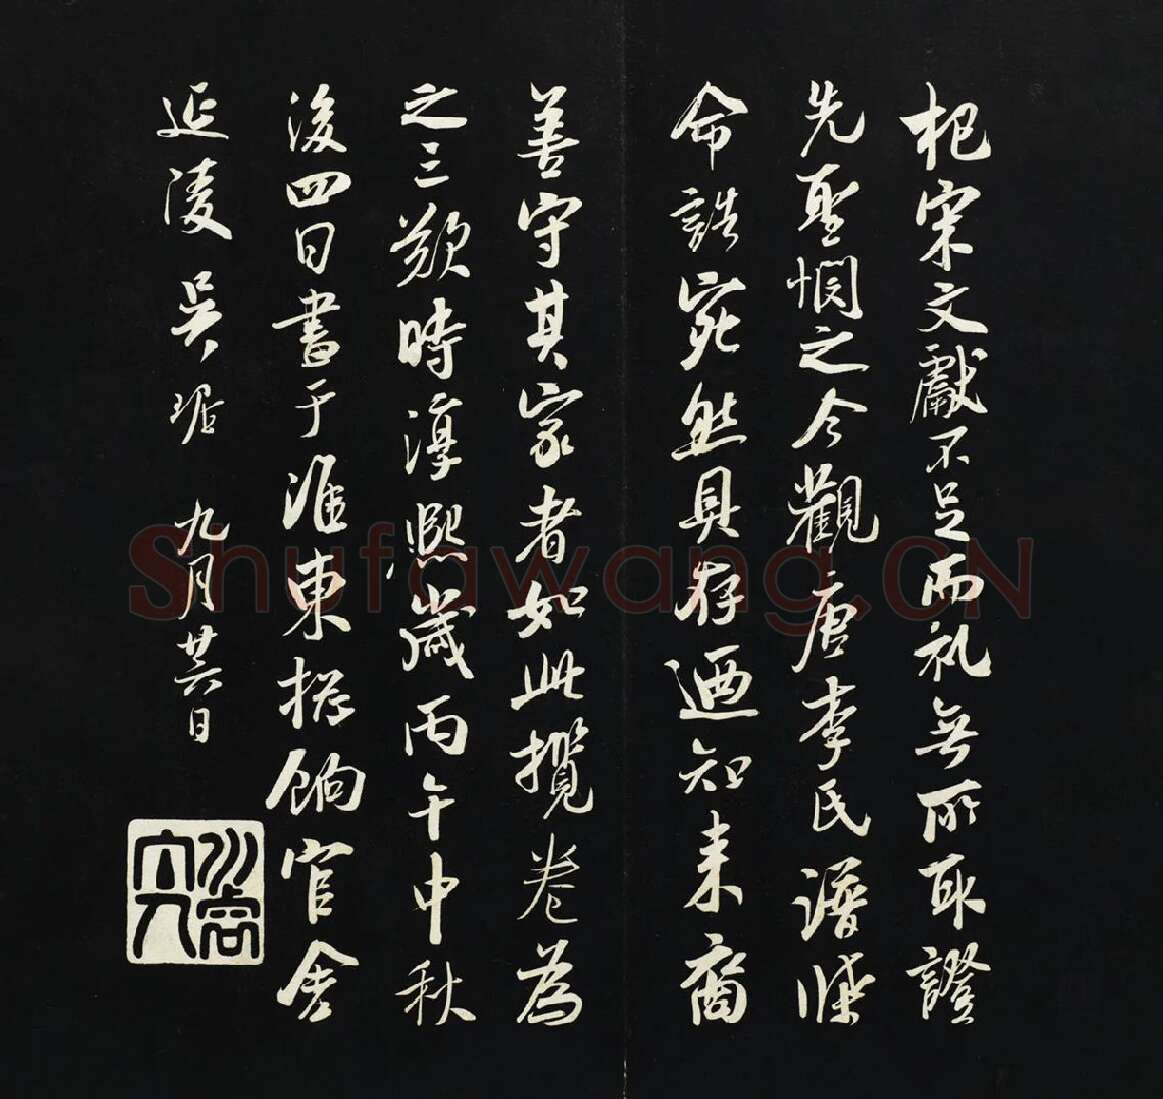 杞宋文獻不足而礼無所取證
先聖憫之今觀唐李氏譜牒
命誥宛然具存迺知来裔
善守其家者如此攬卷為
之三歎時淳熙歳丙午中秋
後四日書于淮東揔餉官舍
延陵吴琚 九月廿六日
Shufawang.CN